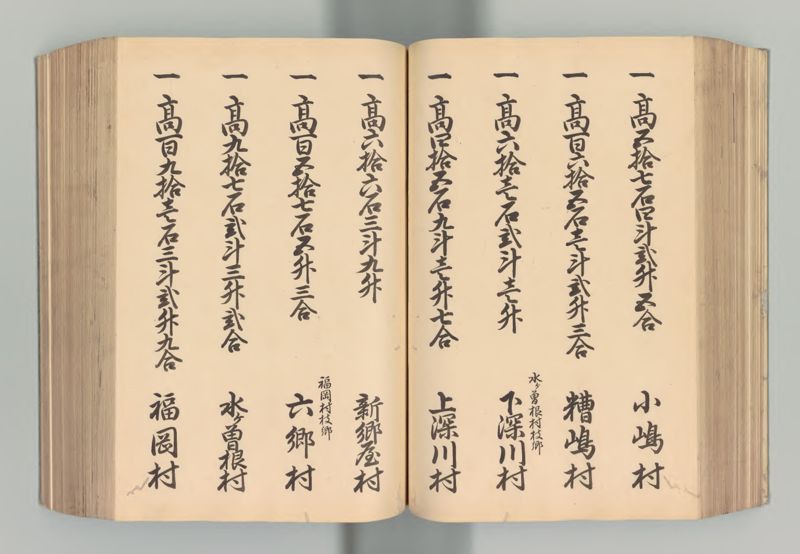 一 高五拾七石四斗弐升五合 小嶋村
一 高百六拾五石壱斗弐升三合 糟嶋村
水ヶ曽根村枝郷
一 高六拾壱石弐斗壱升 下深川村
一 高四拾五石九斗壱升七合 上深川村
一 高六拾六石三斗九升 新郷屋村
福岡村枝郷
一 高百五拾七石五升三合 六郷村
一 高九拾七石弐斗三升弐合 水ヶ曽根村
一 高百九拾壱石三斗弐升九合 福岡村